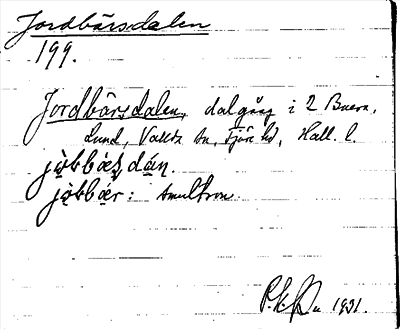 Jordbärsdalen
199.
Jordbärsdalen, dalgång i 2 Buera,
Lund, Vallda sn, Fjäre hd, Hall. l.
jọ̀bbæs̩ dáṇ.
jọ̀bbær: smultron.
1931.